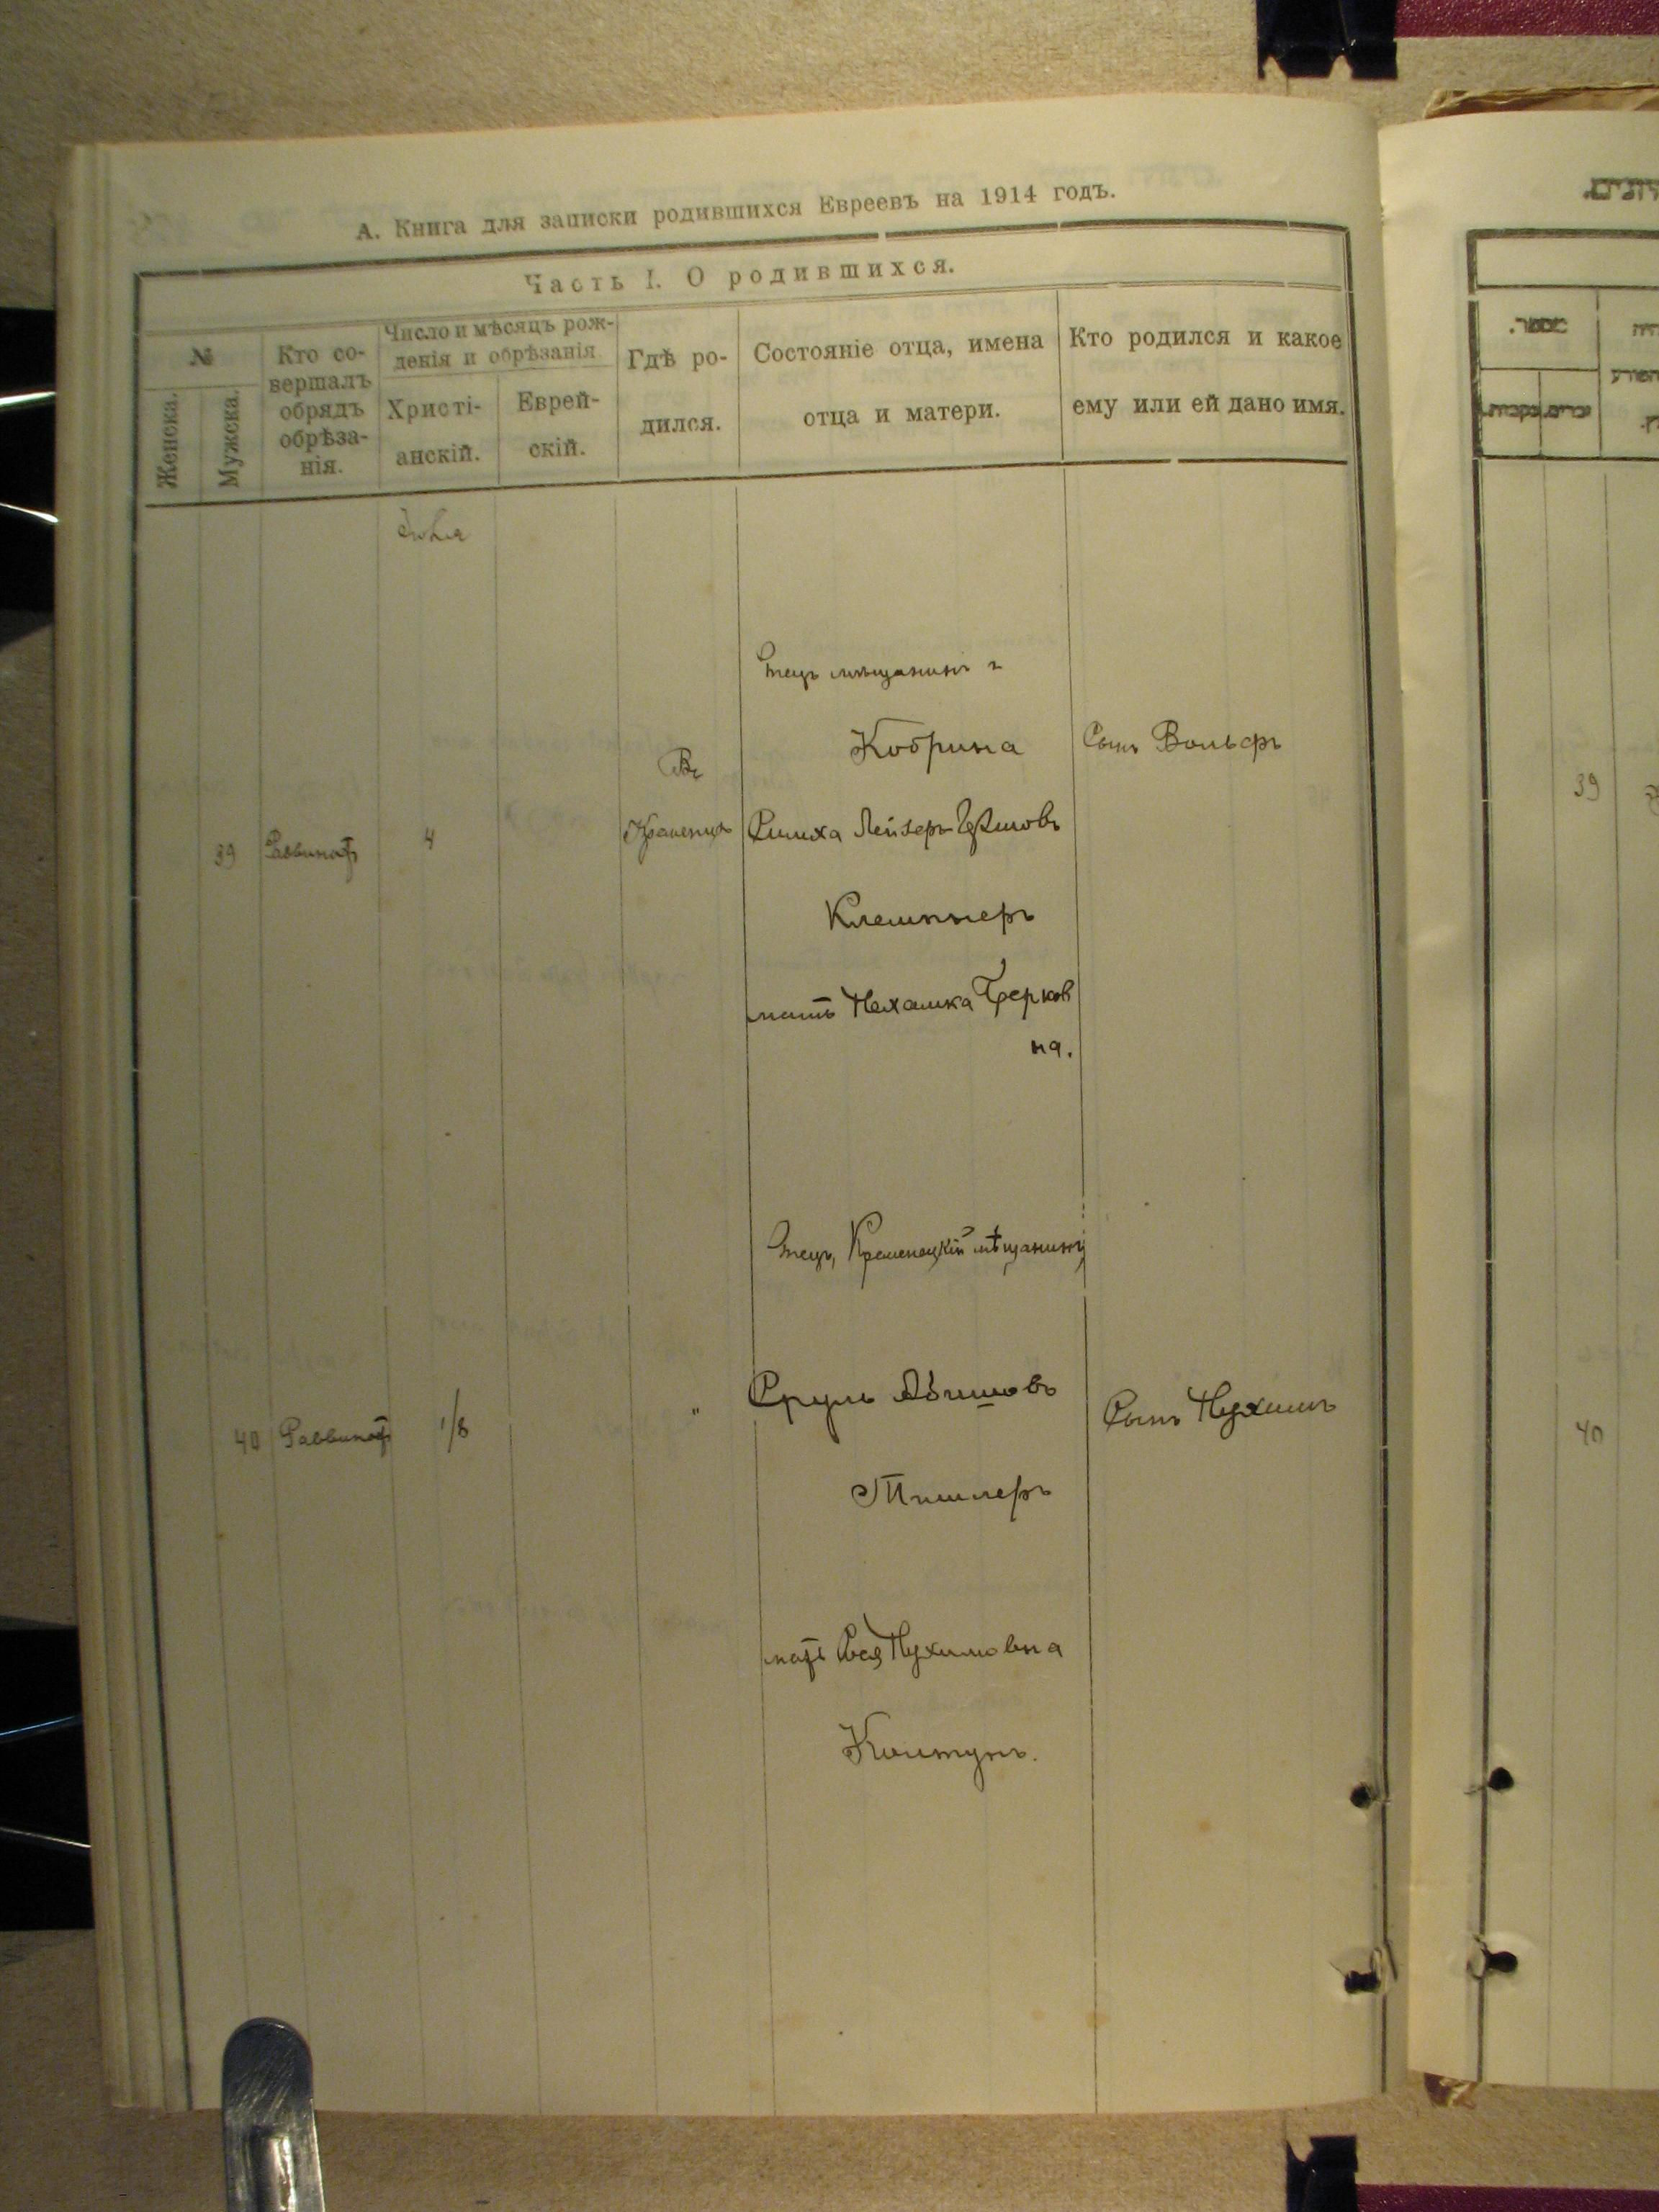 А. Книга для записки родившихся Евреевъ на 1914 годъ.
Часть I. О родившихся.
№
Женска.
Мужска.
Кто со-
вершалъ
обрядъ
обрѣза-
нія.
Число и мѣсяцъ рож-
денія и обрѣзанія
Христі-
анскій.
Еврей-
скій.
Гдѣ ро-
дился.
Состояніе отца, имена
отца и матери.
Кто родился и какое
ему или ей дано имя.
39
Раввинатъ
4
Въ
Кременцѣ
Отецъ мѣщанинъ г
Кобрина
Симха Лейзеръ
мать Нехамка Берков
на.
Сынъ Вольфъ
40
Раввинатъ
1/8
"
Отецъ, Кременецкій мѣщанинъ
Сруль Абишовъ
Тишлеръ
мать Нухимовна
Колтунъ.
Сынъ Нухимъ
מספר.
זכרים.
נקבות.
39
40